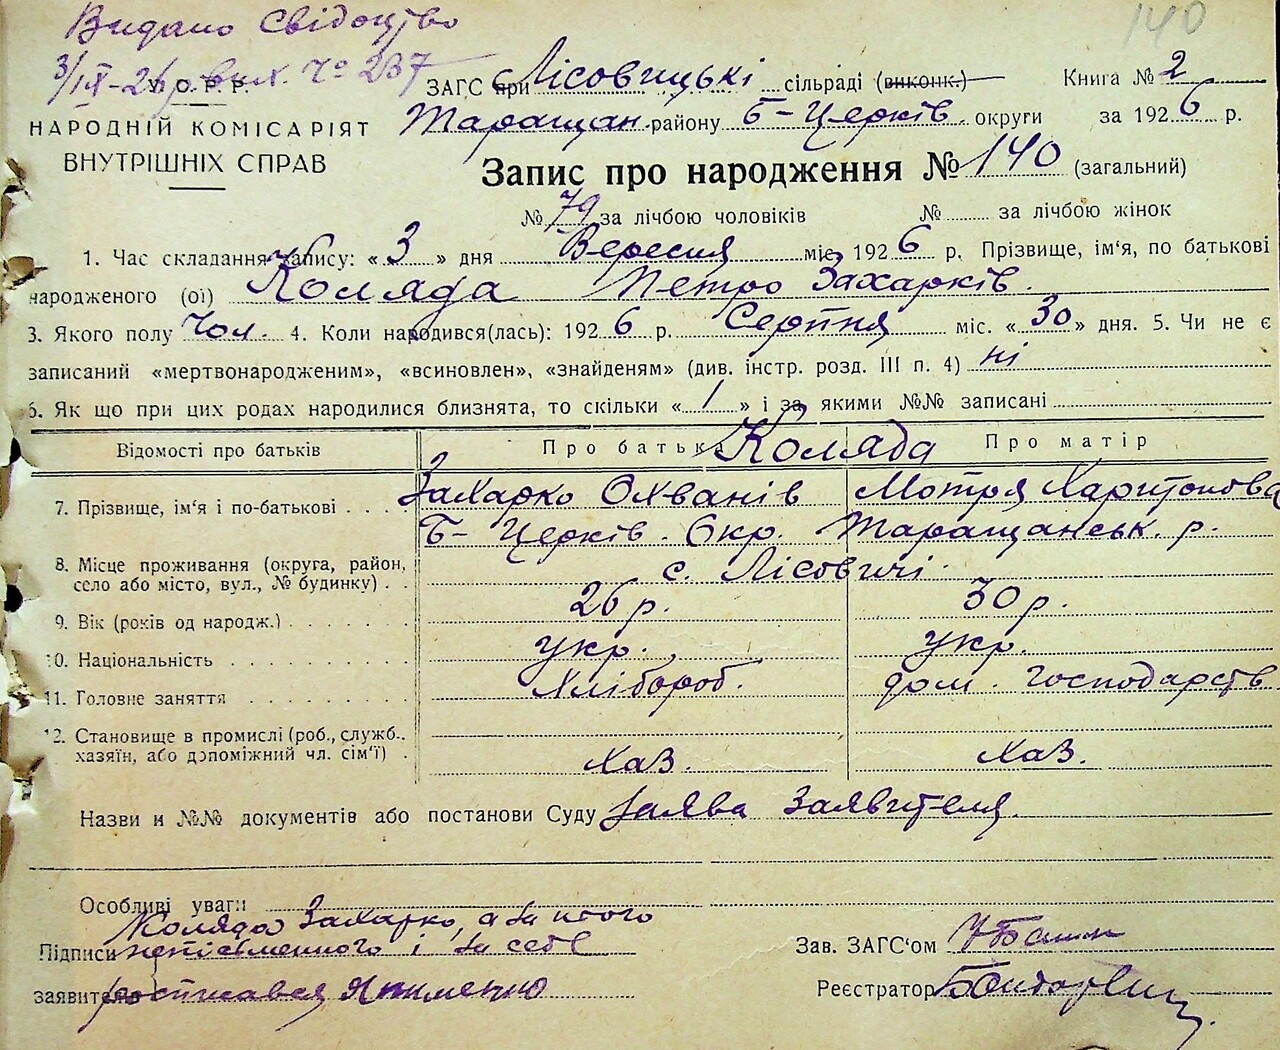 Видано Свідоцтво
140
3/IX-26 р. вих. № 237
У.С.Р.Р.
НАРОДНІЙ КОМІСАРІЯТ
ВНУТРІШНІХ СПРАВ
ЗАГС при Лісовицькі сільраді (виконк.) Книга № 2
Таращан. району Б-Церків. округи за 1926 р.
Запис про народження № 140 (загальний)
№ 79 за лічбою чоловіків № за лічбою жінок
1. Час складання запису: «3» дня Вересня міс. 1926 р. Прізвище, ім'я, по батькові
народженого (ої) Коляда Петро Захарків.
3. Якого полу Чол. 4. Коли народився(лась): 1926 р. Серпня міс. «30» дня. 5. Чи не є
записаний «мертвонародженим», «всиновлен», «знайденям» (див. інстр. розд. III п. 4) ні
6. Як що при цих родах народилися близнята, то скільки «1» і за якими №№ записані
Відомості про батьків Про батька Коляда Про матір
7. Прізвище, ім'я і по-батькові Захарко Охванів Мотря Харитонова
Б-Церків. Окр. Таращанськ. р.
8. Місце проживання (округа, район, село або місто, вул., № будинку) с. Лісовичі.
9. Вік (років од народж.) 26 р. 30 р.
10. Національність укр. укр.
11. Головне заняття Хлібороб. дом. господарств
12. Становище в промислі (роб., служб. хазяїн, або допоміжний чл. сім'ї) Хаз. Хаз.
Назви и №№ документів або постанови Суду Заява Заявителя.
Особливі уваги
Коляда Захарко, а за нього
Підписи неписьменного і за себе
заявителів росписався Якименко
Зав. ЗАГС'ом
Реєстратор